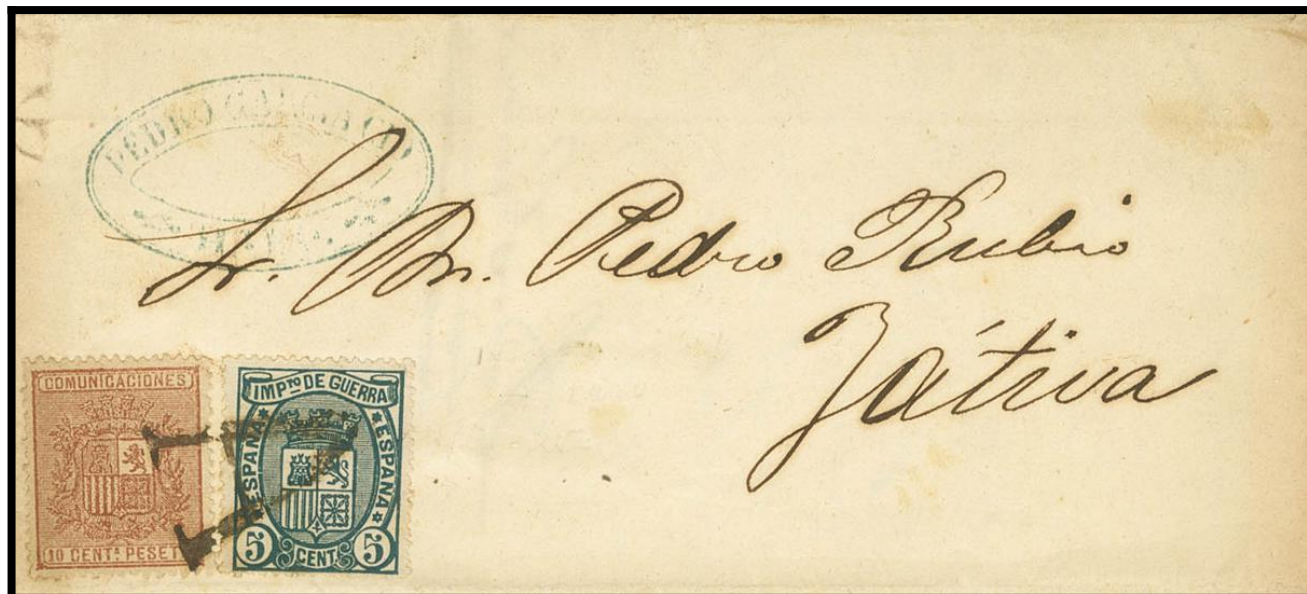 PEDRO
Sr. Dn. Pedro Rubio
Játiva
COMUNICACIONES
10 CENTS PESETA
IMPTO DE GUERRA
ESPAÑA
ESPAÑA
5 CENT 5